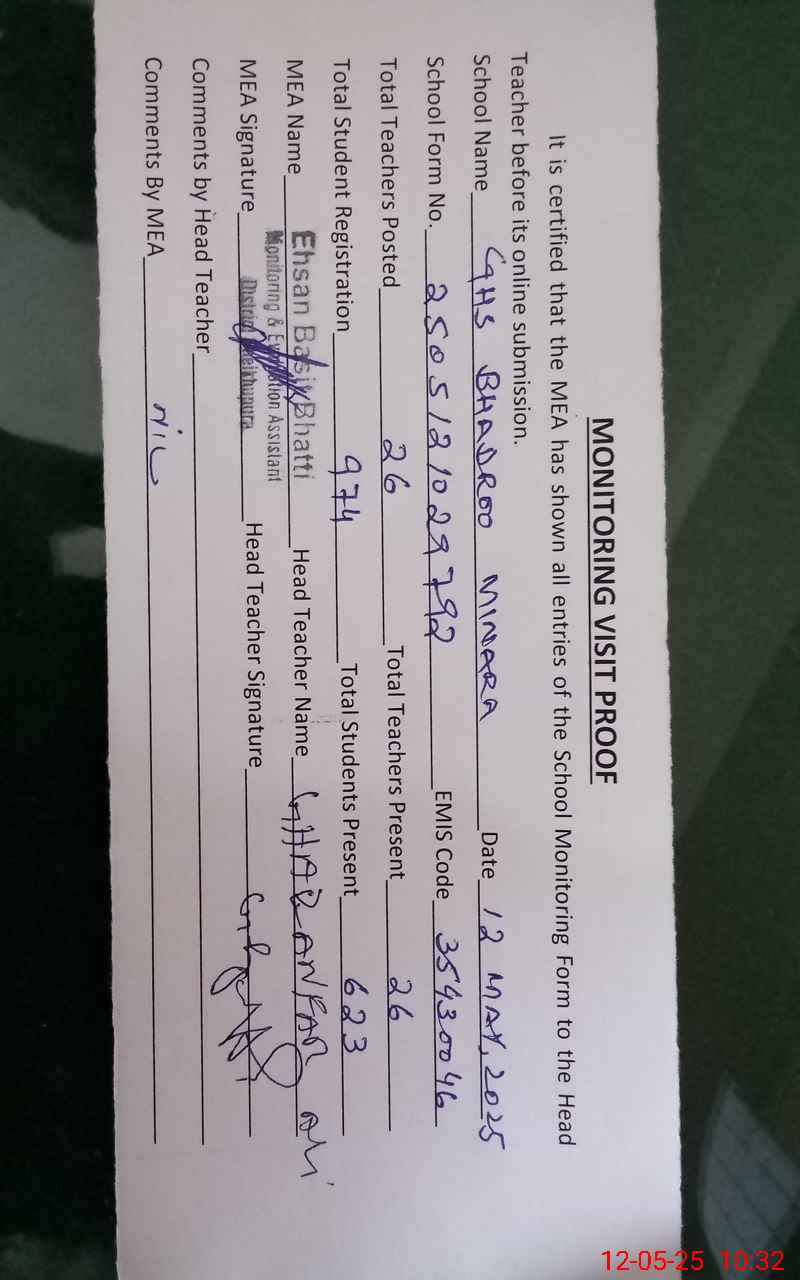 MONITORING VISIT PROOF
It is certified that the MEA has shown all entries of the School Monitoring Form to the Head
Teacher before its online submission.
School Name GHS BHADROO MINARA Date 12 MAY, 2025
School Form No. 2505121029792 EMIS Code 35430046
Total Teachers Posted 26 Total Teachers Present 26
Total Student Registration 974 Total Students Present 623
MEA Name Ehsan Basir Bhatti Head Teacher Name GHAZANFAR ALI
Monitoring & Evaluation Assistant
MEA Signature District Sheikhupura Head Teacher Signature
Comments by Head Teacher
Comments By MEA NIL
12-05-25 10:32